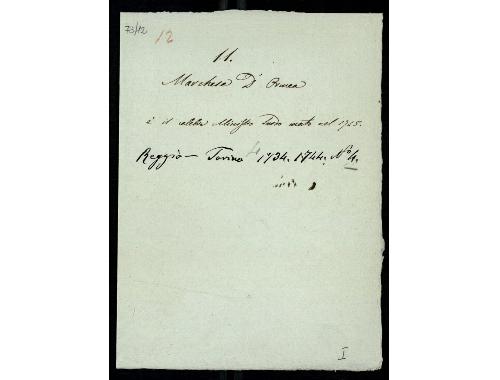 73/12
12
11.
Marchese D'Ormea
è il celebre Ministro morto nel 1745.
Reggio — Torino 4 1734. 1744. N.° 4.
I